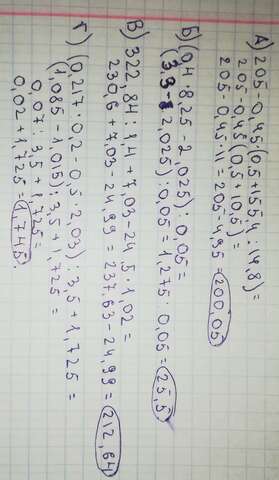 А) 205-0,45(0,5+155,4:14,8)=
205-0,45(0,5+10,5)=
205-0,45·11=205-4,95=200,05
Б) (0,4·8,25-2,025):0,05=
(3,3-2,025):0,05=1,275:0,05=25,5
В) 322,84:1,4+7,03-24,5·1,02=
230,6+7,03-24,99=237,63-24,99=212,64
Г) (0,217:0,2-0,5·2,03):3,5+1,725=
(1,085-1,015):3,5+1,725=
0,07:3,5+1,725=
0,02+1,725=1,745.